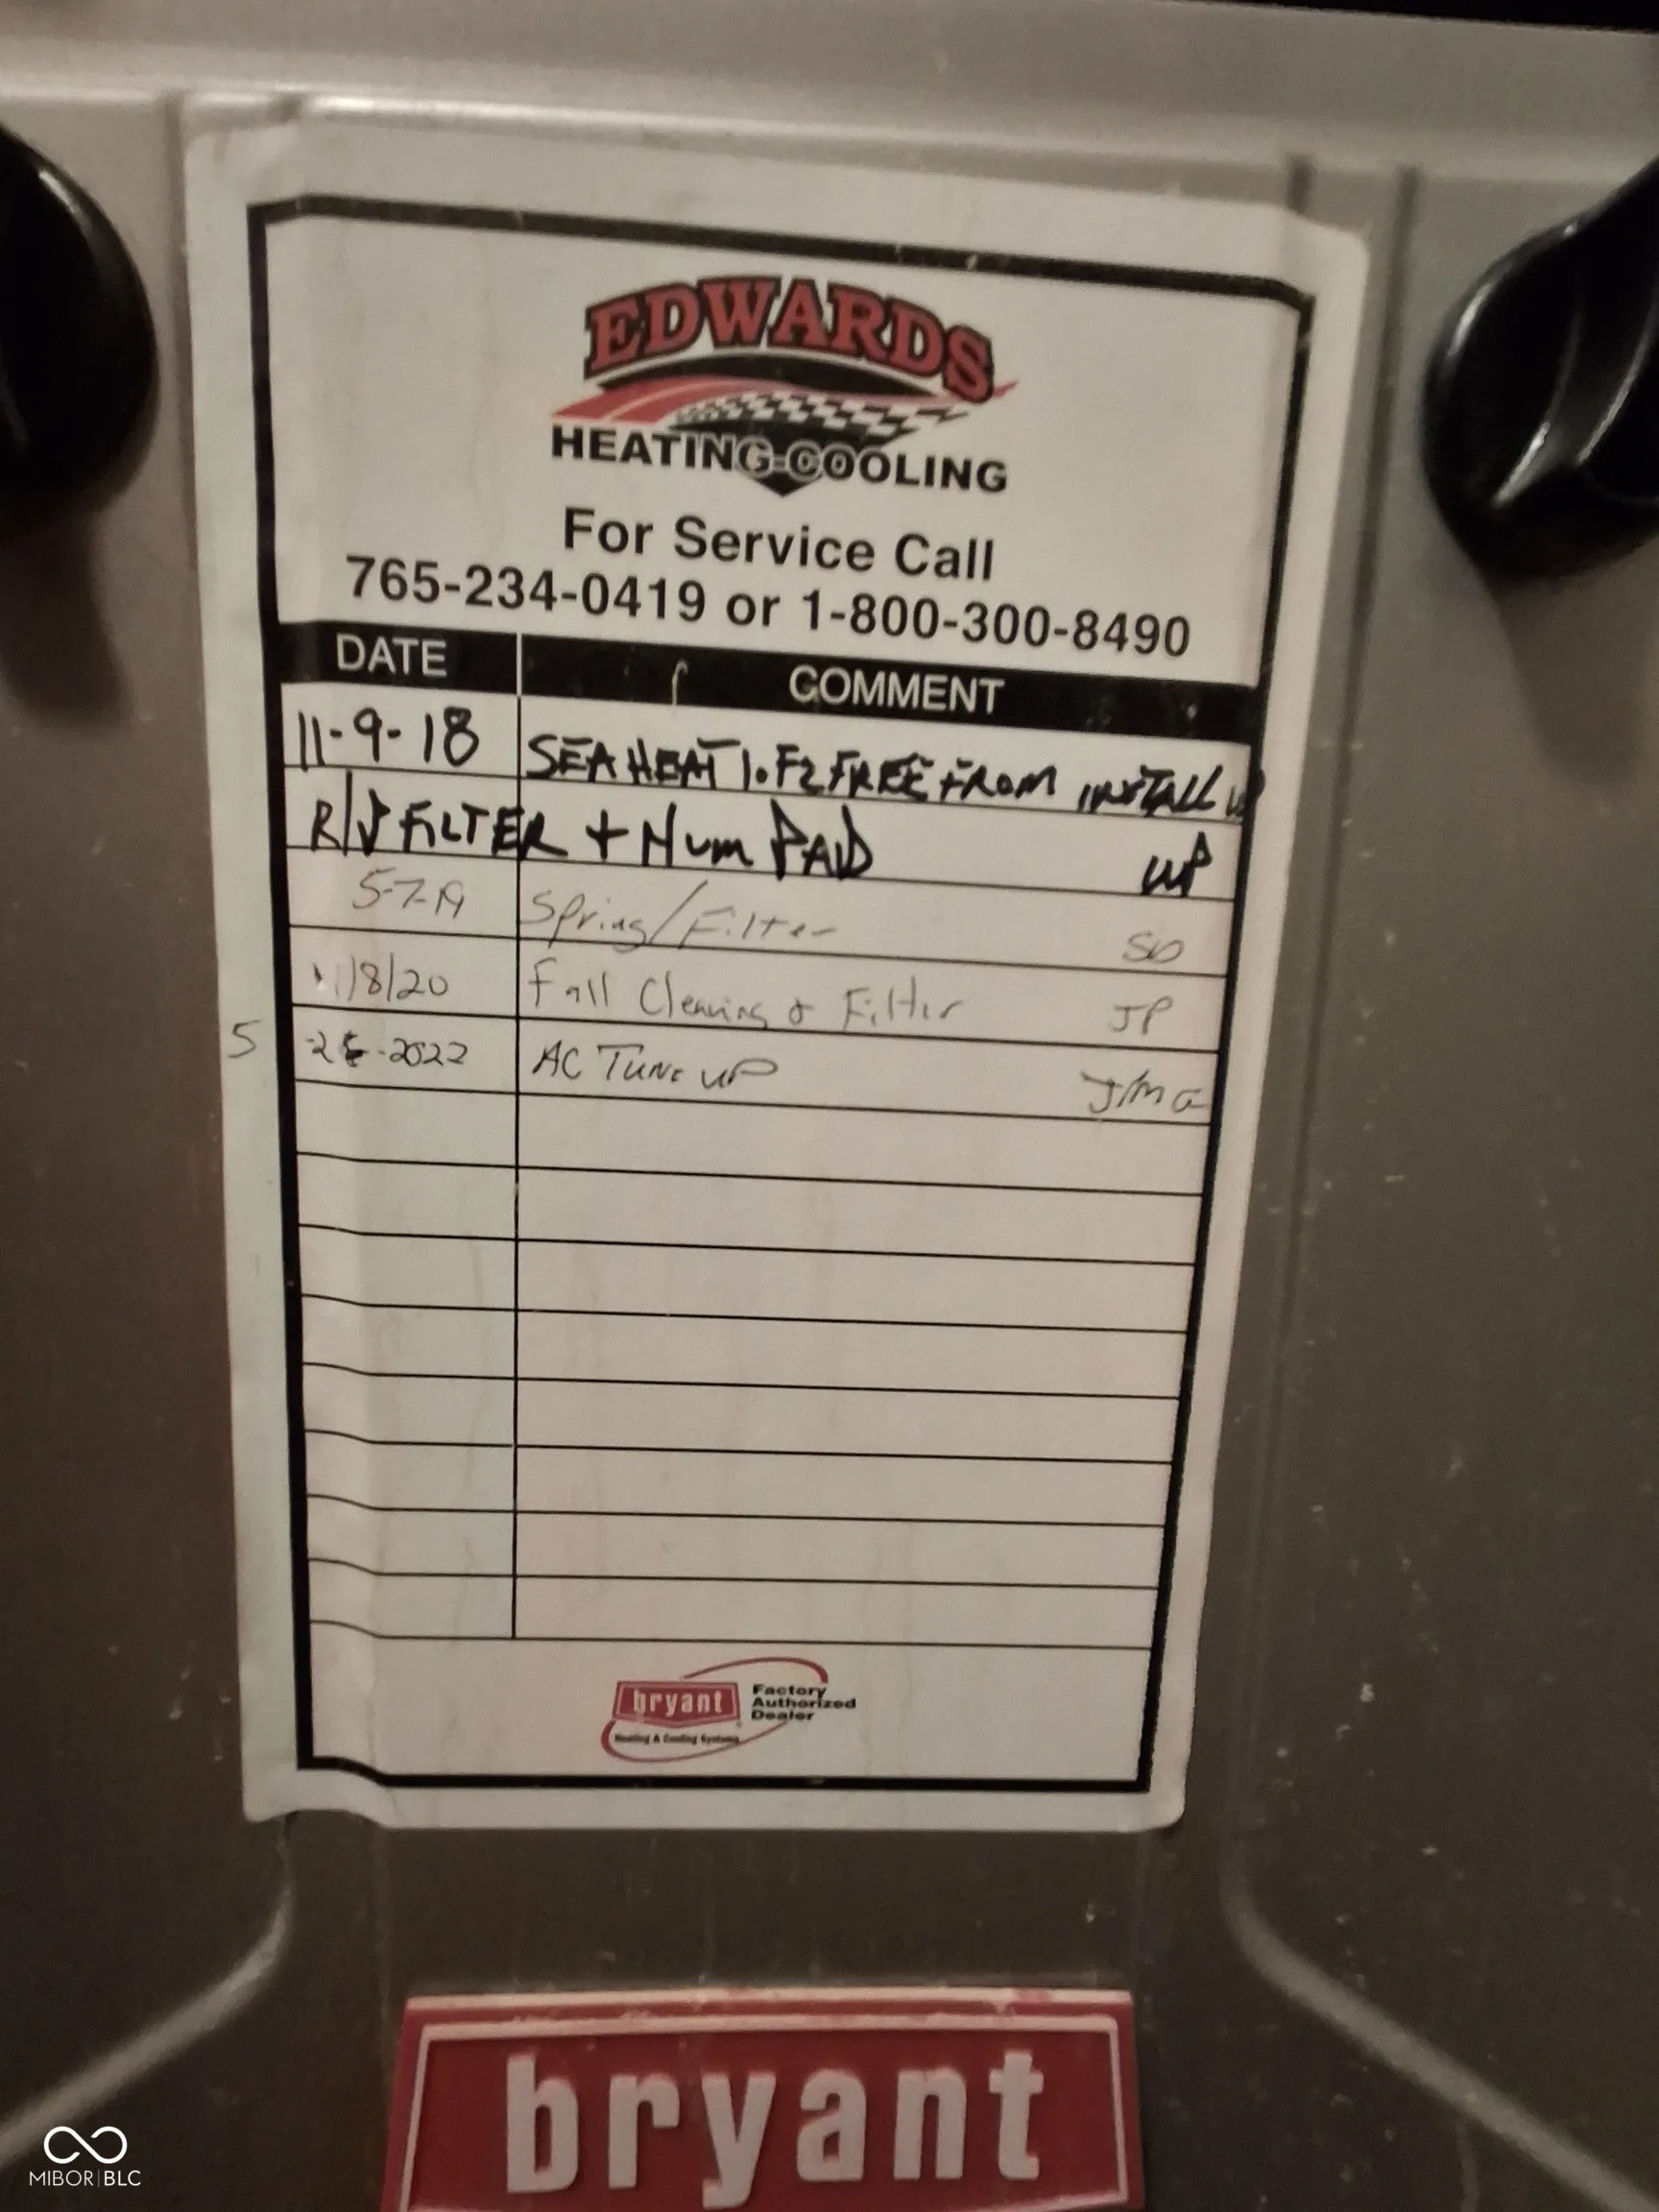 EDWARDS
HEATING-COOLING
For Service Call
765-234-0419 or 1-800-300-8490
DATE COMMENT
11-9-18 SEA HEAT 1 OF 2 FREE FROM INSTALL
R/V FILTER + HUM PAD WP
5-7-19 Spring/Filter SD
11/8/20 Fall Cleaning & Filter JP
5 -2 -2022 AC TUNE UP J/MG
bryant Factory
Authorized
Dealer
Heating & Cooling Systems
bryant
MIBOR|BLC